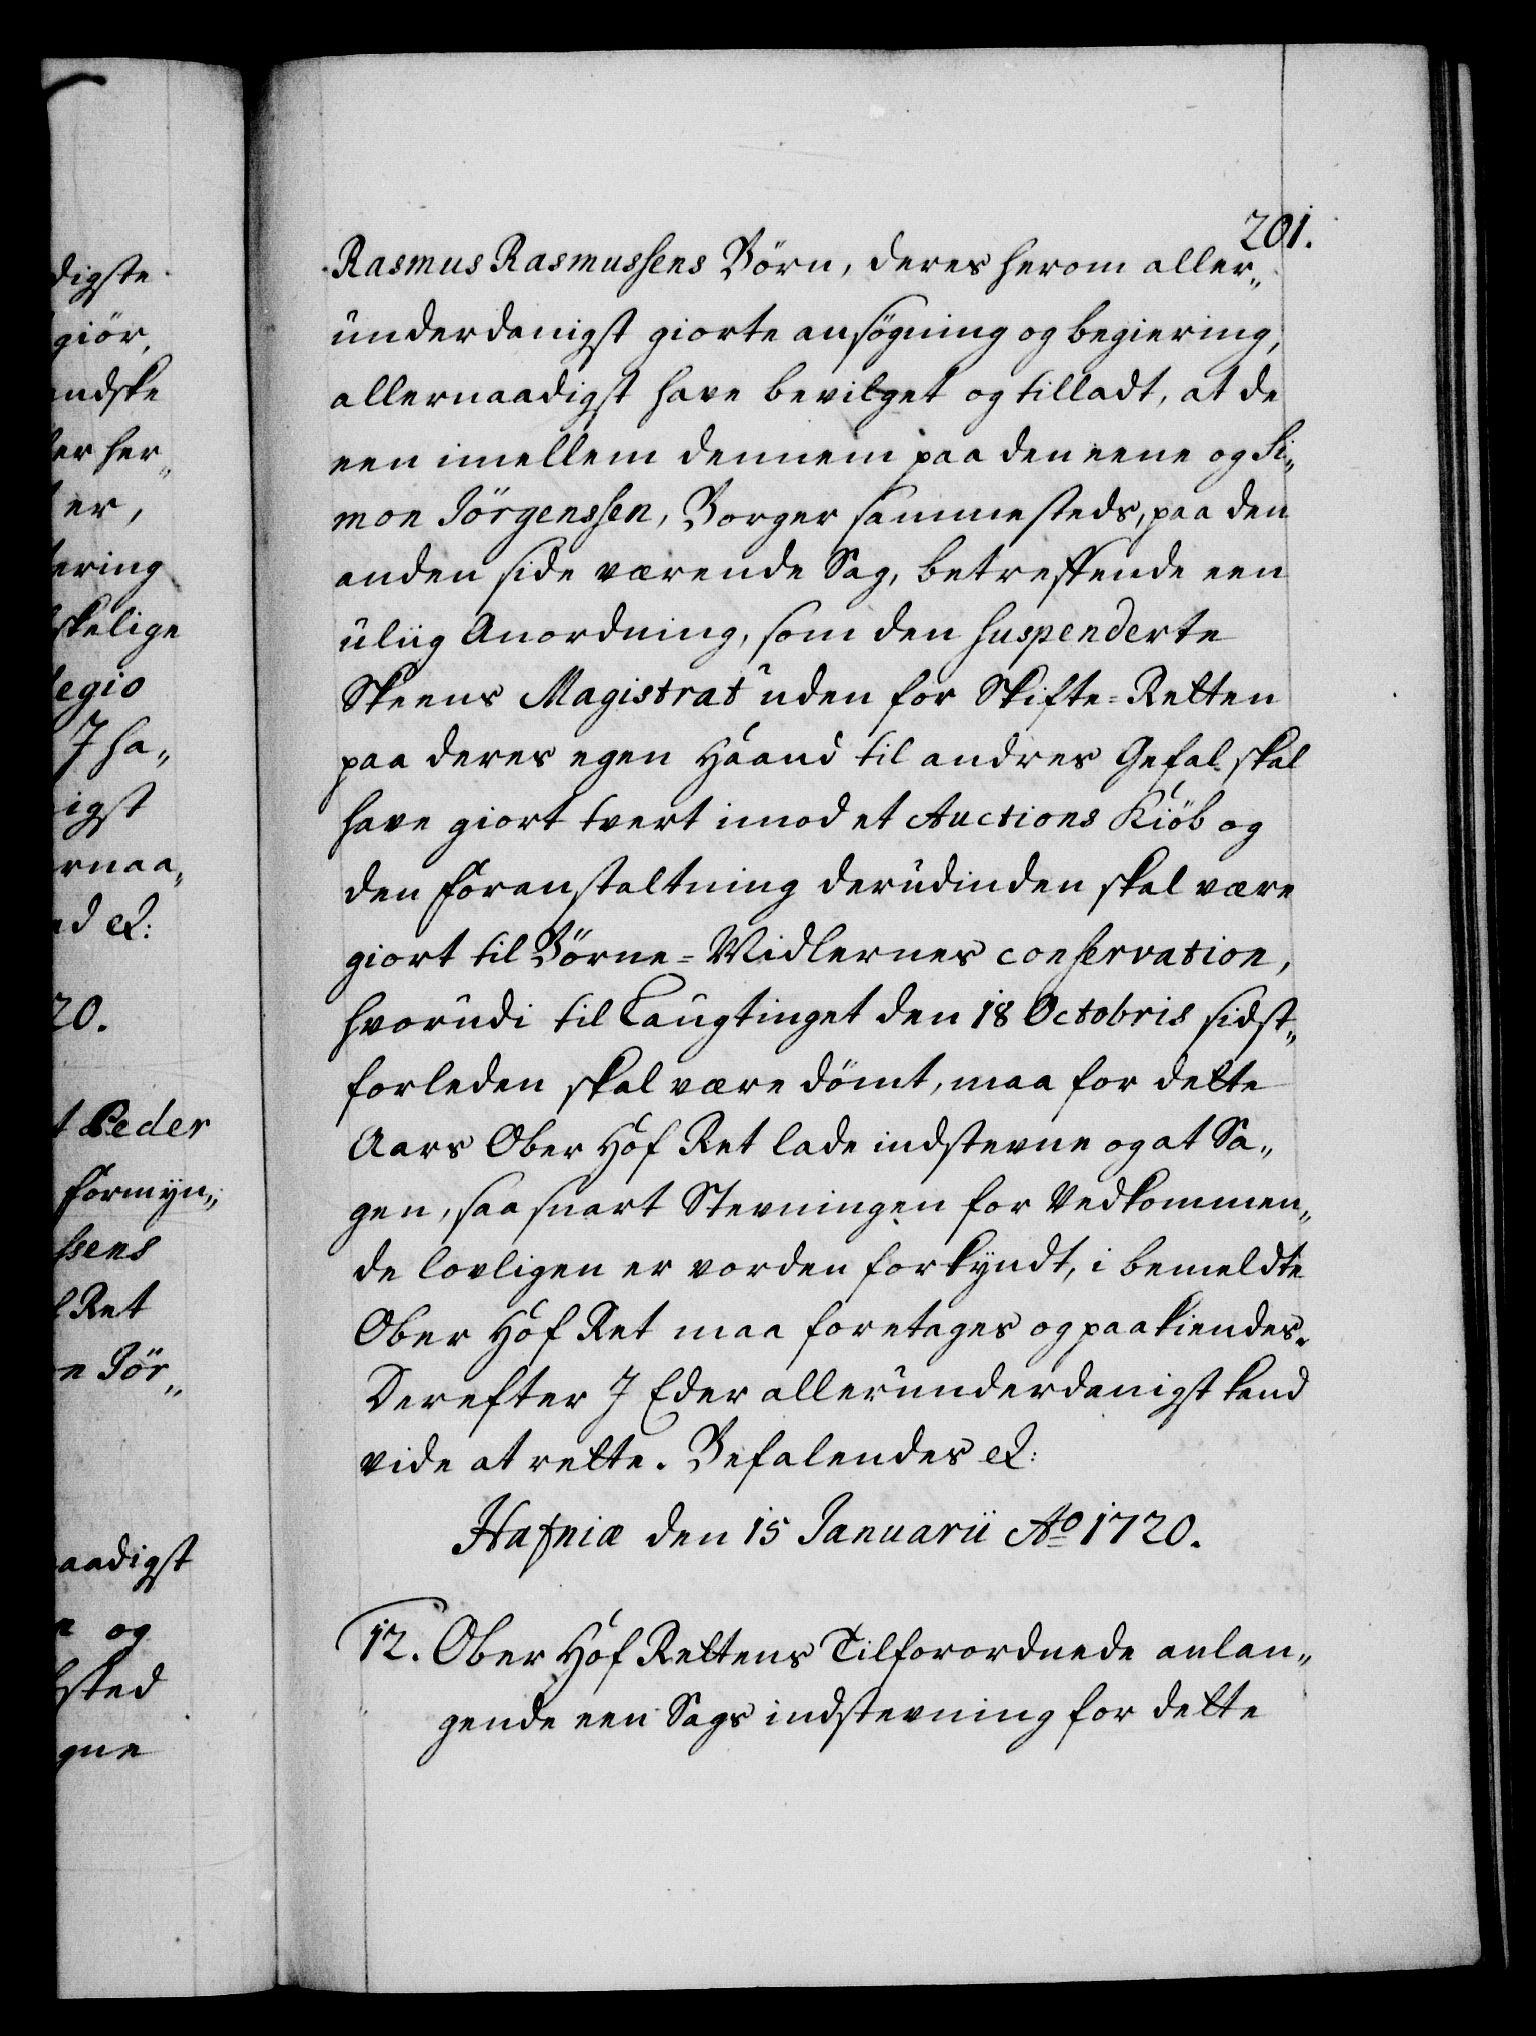 201.
Rasmus Rasmussens Börn, deres herom aller„
underdanigst giorte ansøgning og begiering,
allernaadigst have bevilget og tilladt, at de
een imellem dennem paa den eene og Si„
mon Jörgenssen, Borger sammesteds, paa den
anden side værende Sag, betreffende een
uliig Anordning, som den suspenderte
Skeens Magistrat uden for Skifte-Retten
paa deres egen Haand til andres Gefal skal
have giort tvert imod et Auctions Kiöb og
den foranstaltning derudinden skal være
giort til Börne-Midlernes conservation,
hvorudi til Laugtinget den 18 Octobris sidst„
forleden skal være dömt, maa for dette
Aars Ober Hof Ret lade indstevne og at Sa„
gen, saa snart Stevningen for Vedkommen„
de lovligen er vorden forkyndt, i bemeldte
Ober Hof Ret maa foretages og paakiendes.
Derefter I Eder allerunderdanigst kand
vide at rette. Befalendes etc:
Hafniæ den 15 Januarii Ao 1720.
12. Ober Hof Rettens Tilforordnede anlan„
gende een Sags indstevning for dette
digste
giör,
andske
er her„
er,
ering
skelige
legio
I ha„
igst
rnaa„
ad etc:
20.
t Peder
formyn„
ssens
l Ret
n Jör„
aadigst
og
sted
gne